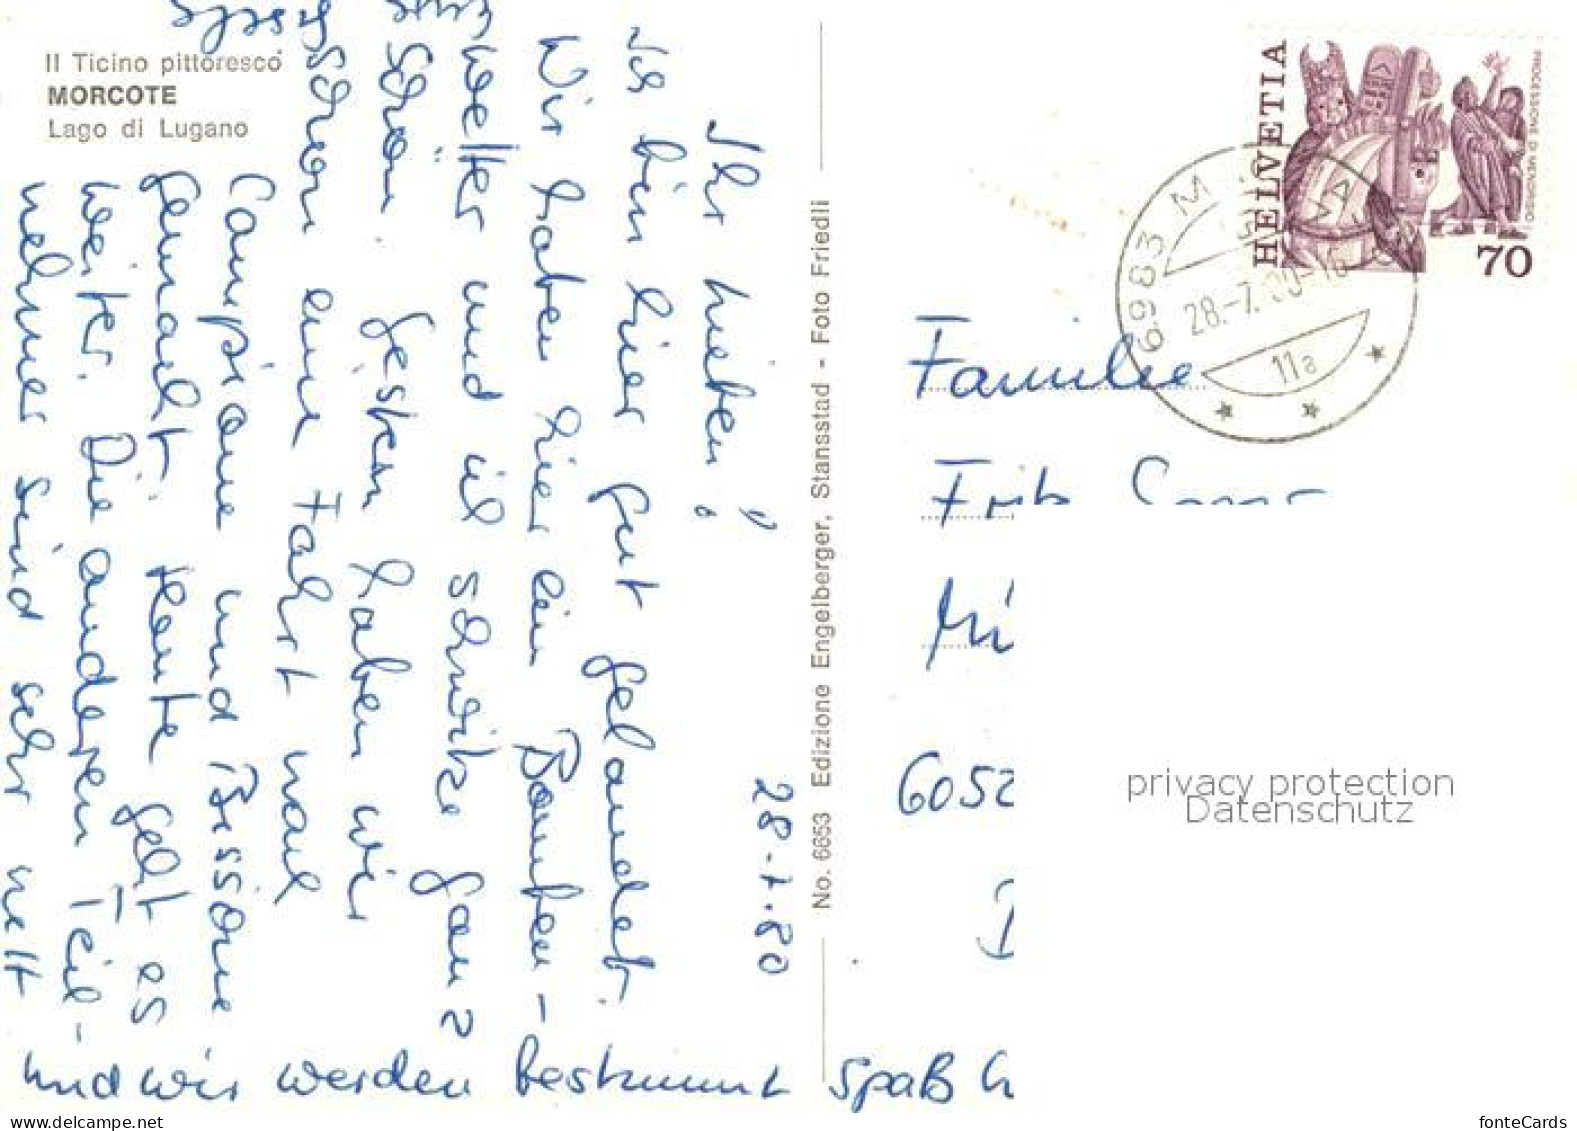 Il Ticino pittoresco
MORCOTE
Lago di Lugano
28.7.80
Ihr lieben!
bin hier gut gelandet.
Wir haben hier ein Bomben-
wetter und ich schwitze ganz
schön. Gestern haben wir
schon eine Fahrt nach
Campione und Bissone
gemacht. Heute geht es
weiter. Die anderen Teil-
nehmer sind sehr nett
und wir werden bestimmt Spaß h
No. 6653 Edizione Engelberger, Stansstad - Foto Friedli
HELVETIA
PROCESSIONE DI MENDRISIO
70
6983 M
28.-7.80-16
11a
Familie
6052
privacy protection
Datenschutz
fonteCards